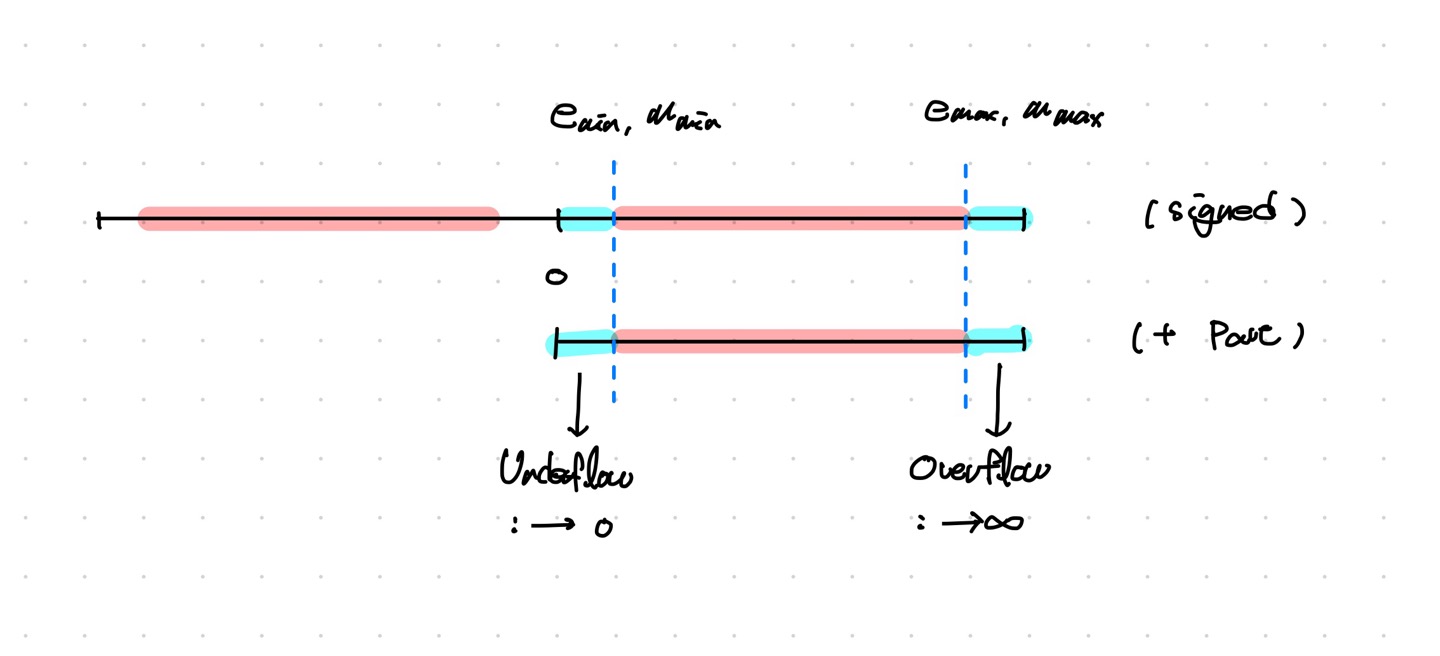 emin, mmin
emax, mmax
(signed)
0
(+ Part)
Underflow
: → 0
Overflow
: → ∞